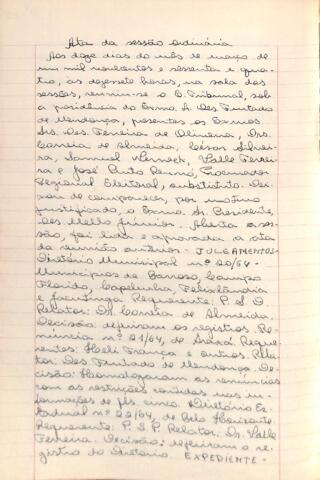 Ata da sessão ordinária
Aos doze dias do mês de março de
um mil novecentos e sessenta e qua-
tro, às dezessete horas, na sala das
sessões, reuniu-se o E. Tribunal, sob
a presidência do Exmo. Sr. Des. Furtado
de Mendonça, presentes os Exmos.
Srs. Des. Ferreira de Oliveira, Drs.
Correia de Almeida, César Silvei-
ra, Samuel Werneck, Valle Ferrei-
ra e José Pinto Renó, Procurador
Regional Eleitoral, substituto. Dei-
xou de comparecer, por motivo
justificado, o Exmo. Sr. Presidente,
Des. Mello Júnior. Aberta a ses-
são, foi lida e aprovada a ata
da reunião anterior. JULGAMENTOS-
Diretório Municipal nº 20/64 -
Municípios de Barroso, Campo
Florido, Capelinha, Felixlândia
e Jacutinga Requerente: P. S. D.
Relator: Dr. Correia de Almeida.
Decisão: deferiram os registros. Re-
núncia nº 21/64, de Araxá. Reque-
rentes: Haeli França e outros. Rela-
tor: Des. Furtado de Mendonça. De-
cisão: Homologaram as renúncias
com as restrições contidas nas in-
formações de fls. cinco. Diretório Es-
tadual nº 22/64, de Belo Horizonte.
Requerente: P. S. P. Relator: Dr. Valle
Ferreira. Decisão: deferiram o re-
gistro do Diretório. EXPEDIENTE -